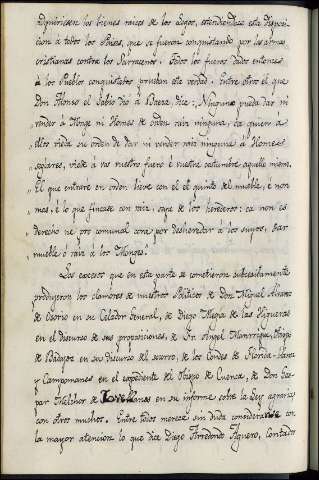 adquiriesen los bienes raices de los Legos, estendiendose esta disposi-
cion á todos los Paises, que se fueron conquistando por las armas
cristianas contra los Sarracenos. Todos los fueros dados entonces
á los Pueblos conquistados prueban esta verdad. Entre otros el que
Don Alonso el Sabio dió á Baeza dice: „Ninguno pueda dar ni
„vender á Monge ni Homes de orden raiz ninguna, ca quien á
„ellos vieda su orden de dar ni vender raiz ninguna á Homes
„seglares, viede á vos vuestro fuero é vuestra costumbre aquello mismo.
„El que entrare en orden lieve con el el quinto del mueble, é non
„mas, é lo que fincase con raiz, saya de los herederos: ca non es
„derecho ne pro comunal cora por desheredar á los suyos, dar
„mueble ó raiz á los Monges."
Los excesos que en esta parte se cometieron subcesivamente
produjeron los clamores de nuestros Politicos de Don Miguel Alvarez
de Osorio en su Celador General, de Diego Mexia de las Higueras
en el discurso de sus proposiciones, de Fr. Angel Manrrique, Obispo
de Badajoz en su discurso del socorro, de los Condes de Florida-blanca
y Campomanes en el expediente del Obispo de Cuenca, de Don Gas-
par Melchor de Jovellanos en su informe sobre la Ley agraria
con otros muchos. Entre todos merece sin duda considerarse con
la mayor atencion lo que dice Diego Arredondo Aguero, Contador